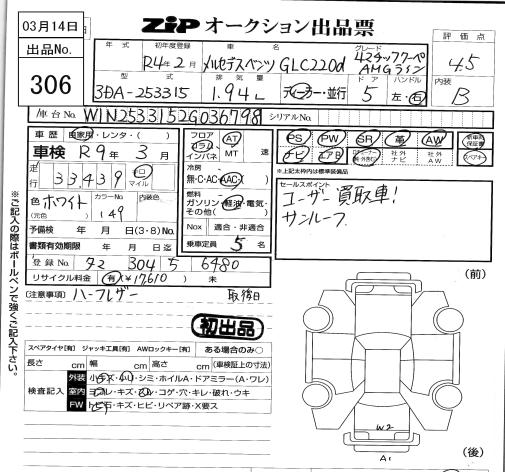 03月14日
出品No.
306
ZIP オークション出品票
年式 初年度登録 車名 グレード
R4年2月 メルセデスベンツ GLC220d 4マチッククーペ AMGライン
評価点
4.5
型式 排気量 ドア ハンドル
3DA-253315 1.94L ディーラー・並行 5 左・右
内装
B
車台No. W1N2533152G036798 シリアルNo.
車歴 自家用・レンタ・( )
車検 R9年3月
走行 33,439 キロ マイル
色 ホワイト (元色) カラーNo. 149 内装色
予備検 年 月 日(3・8)No.
書類有効期限 年 月 日迄
登録No. 304 5 6480
リサイクル料金 有(¥17610) 未
フロア コラム インパネ AT MT 速
冷房 無・C・AC・AAC
燃料 ガソリン・軽油・電気・その他( )
Nox 適合・非適合
乗車定員 5名
PS PW SR 革 AW 新車時保証書
ナビ エアB 社外ナビ 社外AW スペアキー
*上記太枠内は標準装備品
セールスポイント
ユーザー買取車!
サンルーフ
(注意事項) ハーフレザー 取後日
初出品
スペアタイヤ[有] ジャッキ工具[有] AWロックキー[有] ある場合のみ○
長さ cm 幅 cm 高さ cm (車検証上の寸法)
検査記入
外装 小キズ・小凹・シミ・ホイルA・ドアミラー(A・ワレ)
室内 ヨゴレ・キズ・スレ・コゲ・穴・キレ・破れ・ウキ
FW トビ石・キズ・ヒビ・リペア跡・X要ス
(前)
W2
A1
(後)
※ご記入の際はボールペンで強くご記入下さい。